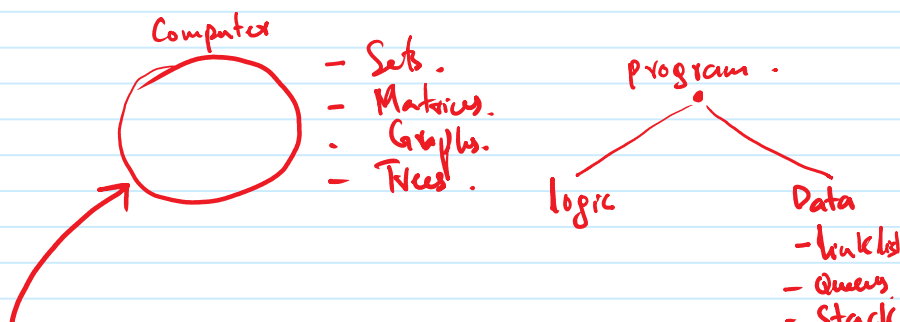 Computer
- Sets.
- Matrices.
. Graphs.
- Trees.
program.
logic
Data
- link list
- Queues
- Stack